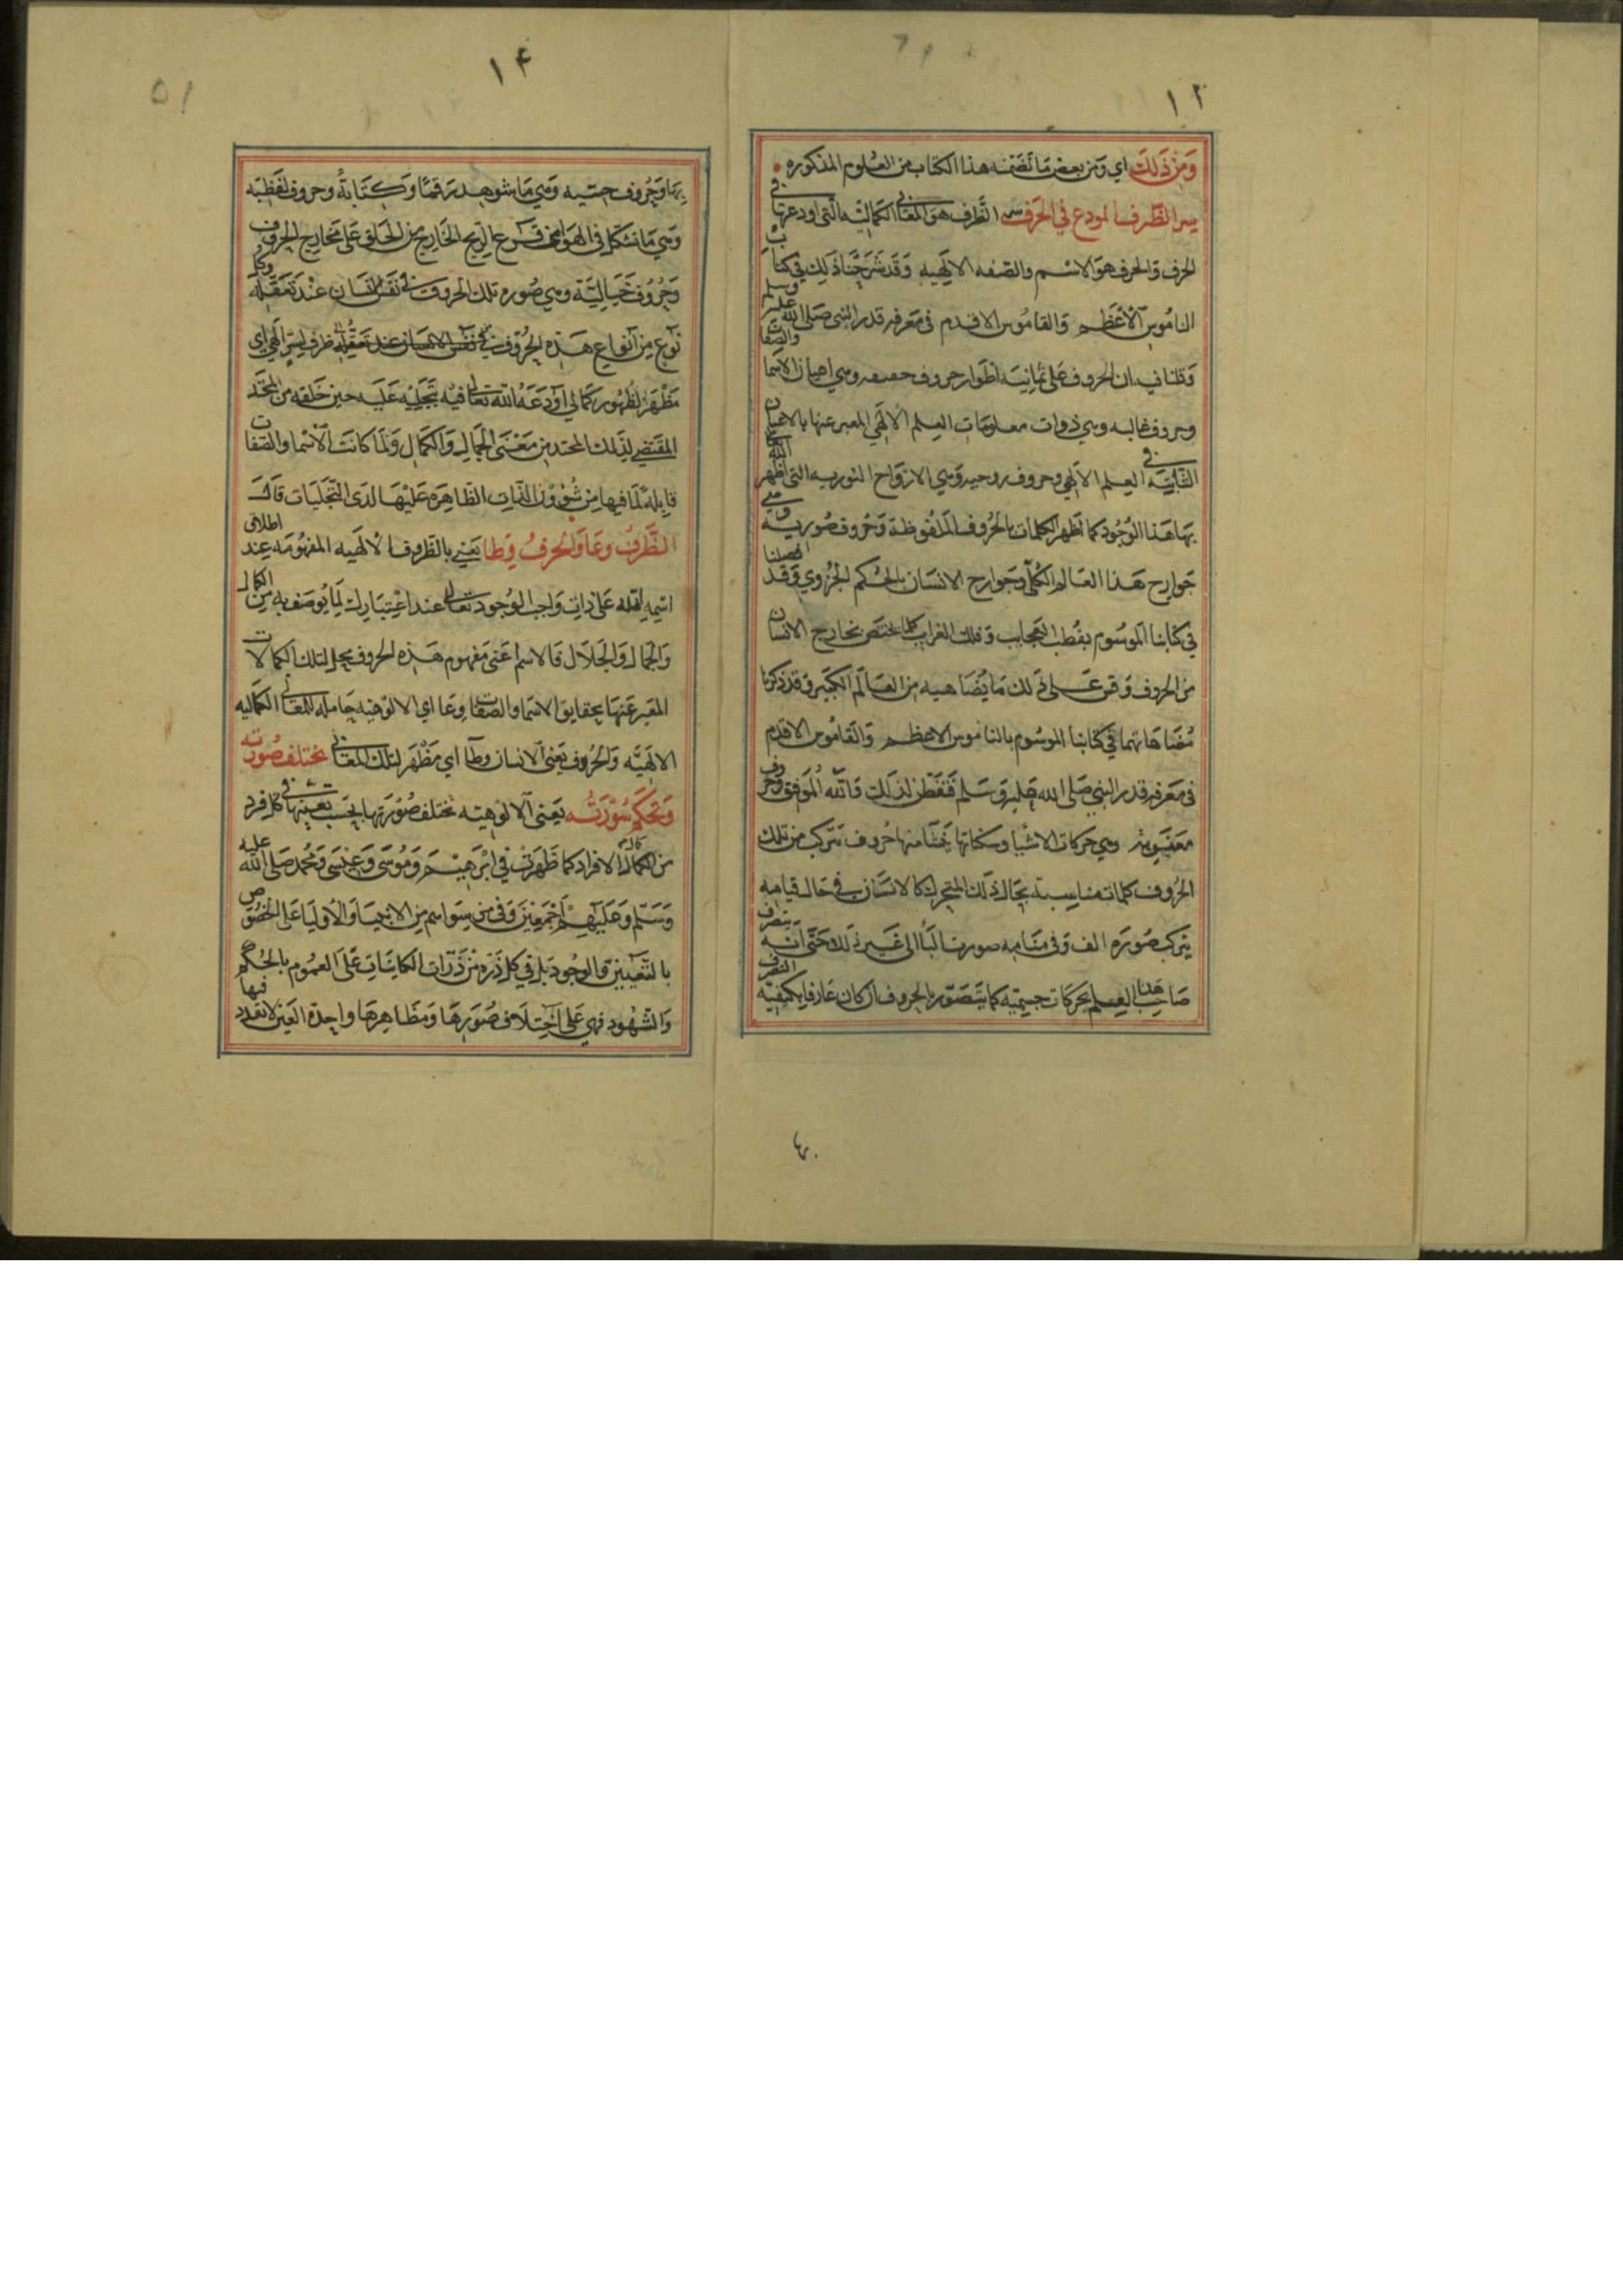 ١٢
وَمِنْ ذَلِكَ اي وَمن بعض مَا تضَمنه هذا الكتاب من العُلوم المذكوره
سر الظَّرف المودع في الحَرف الظَّرف هوَ المعَاني الكماليَّه الَّتي اودعَها في
الحرف وَالحرف هوَ الاسْم والصّفه الالٰهيه وَقَد شَرَحْنا ذلِك في كتاب
النامُوس الْاعْظَم وَالقامُوس الاقدم في معَرفة قدر النبي صَلى الله عليه وسلم
وَقلنا فيه ان الحروف عَلى ثمانِيَه اطْوار حروف حقيقيه وهي اعيان الاسمَا والصّفات
وحروف عَاليه وهي ذوات معلومَات العِلم الالٰهي المعبر عنها بالاعيان
الثّابتَه في العِلم الالٰهي وحروف روحيه وَهي الارْوَاح النوريه التي اظْهر الله تعالى
بهَا هَذا الوُجُود كما تظْهر الكلمات بالحُرُوف المَلْفُوظَة وَحُروف صُوريه وهي
جَوارِح هَذا العَالم الكُلّي وَجَوارح الانسَان بالحُكم الجُزوي وَقَد افصلنا
في كتابنا المَوسُوم بقُطب العَجايب وَفلك الغرايب كلما يختصّ بخارج الانسَان
من الحروف وَقس عَلى ذلك مَا يُضَاهيه من العَالم الكَبير وَقد ذكرنا
مُضَاهَاتهما في كتابنا الموسُوم بالناموس الاعظم وَالقامُوس الاقدم
في معَرفة قدر النبي صَلى الله عَليه وَسَلم فتفَطّن لذلك وَالله المُوَفق وَحروف
معنَويه وهي حركات الاشيا وسكناتها يَنشَا منها حُروف تتركب من تلك
الحُروف كلمات مناسبة بحَال ذلك المتحرك كالانسَان في حَال قيامِه
يتركب صُورَة الف وَفي منامِه صورة البَا الى غَير ذلك حَتى انّه يتصَرف
صَاحِب هذا العِلم بحركات جسمِيّه كما يتَصَوّر بالحروف ان كان عَارفا بكيفيّة التصرف
١٤
بهَا وَحُروف حسّيه وَهي مَا شوهِد رَقمًا وَكِتَابَةً وحروف لفظيّه
وَهي مَا تشكل في الهَوا من قَرع الرِّيح الخَارج من الحَلق عَلى مخارِج الحروف
وَحُرُوف خَيَاليَّة وهي صُورة تلك الحروف في نفَس الانسَان عنْد تَعَقّله وكل
نوْع مِن انْواع هَذه الحُرُوف في نفس الانسَان عند تعَقُّله ظرف لسِرّ الٰهي اي
مَظْهَر لظهُور كمَالي اوْدَعَهُ الله تعَالى فيه بتَجَلّيه عَليه حين خَلقه من المحتَد
المقتَضي لذلك المحتد من مَعْنى الجَمال وَالكَمال وَلمَا كانت الْاسْمَا والصّفات
قابِلة لما فيها من شُؤُون الذّات الظّاهِرَه عَليْهَا لَدَى التّجَليَات قالَ
الظَّرفُ وعَا وَالحَرفُ وِطا يَعني بالظّروف الالٰهيه المفهُومَه عِند اطلاق
اسْمِه لله عَلى ذات وَاجب الوُجود تعَالى عند اعْتِبَارك لمَا يُوصَف به من الكمال
وَالجمال وَالجَلَال فَالاسم اعْني مَفهُوم هَذه الحروف محل لتلك الكمالات
المعَبر عَنها بحَقايق الاسمَا والصّفات وِعَا اي الالوهيه حَاملة للمعَاني الكماليه
الالٰهيَّه وَالحُروف يعَني الانسان وِطا اي مَظْهر لتلك المعَاني تختلف صُورته
وَتحكم سُورَتُه يَعني الالوهيّه تختلف صُورَتها بحسَب تعيّنها في كل فرد
من الكمال الافراد كما ظَهرت في ابْرَهيم وَمُوسَى وَعيسَى وَمحمد صَلى الله عليه
وَسَلّم وَعَليهِم اجْمَعِين وَفي من سِوَاهم من الانبيَا وَالاوْليَا عَلى الخصُوص
بالتّعيين وَالوجُود بَل في كل ذرّه من ذَرّات الكاينَات عَلى العمُوم بالحُكم
وَالشّهُود فهي عَلى اختِلاف صُوَرِهَا وَمَظَاهِرهَا واحِدة العَين لا تعَدد فيها